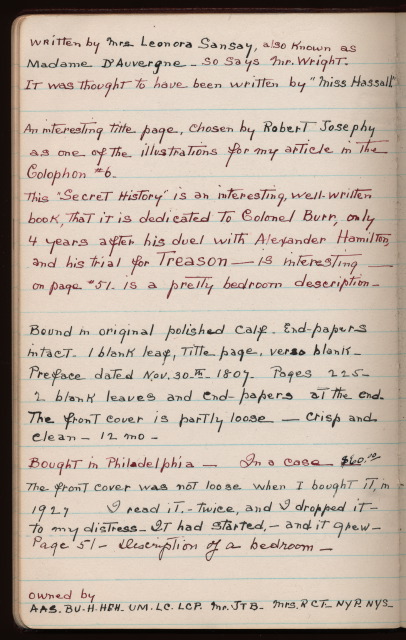 written by Mrs Leonora Sansay, also known as
Madame D'Auvergne - so says Mr. Wright.
It was thought to have been written by "Miss Hassall"
An interesting title page, chosen by Robert Josephy
as one of the illustrations for my article in the
Colophon #6.
This "Secret History" is an interesting, well-written
book, that it is dedicated to Colonel Burr, only
4 years after his duel with Alexander Hamilton,
and his trial for Treason — is interesting —
on page #51. is a pretty bedroom description -
Bound in original polished calf. End-papers
intact. 1 blank leaf, Title page, verso blank -
Preface dated Nov. 30th - 1807. Pages 225 -
2 blank leaves and end-papers at the end.
The front cover is partly loose - crisp and
clean - 12 mo -
Bought in Philadelphia — In a case
The front cover was not loose when I bought it, in
1927 I read it - twice, and I dropped it -
to my distress - It had started, - and it grew -
Page 51 - Description of a bedroom -
owned by
AAS. BU-H. HEH. UM. LC. LCP. Mr. JTB - Mrs. RCT - NYP. NYS -